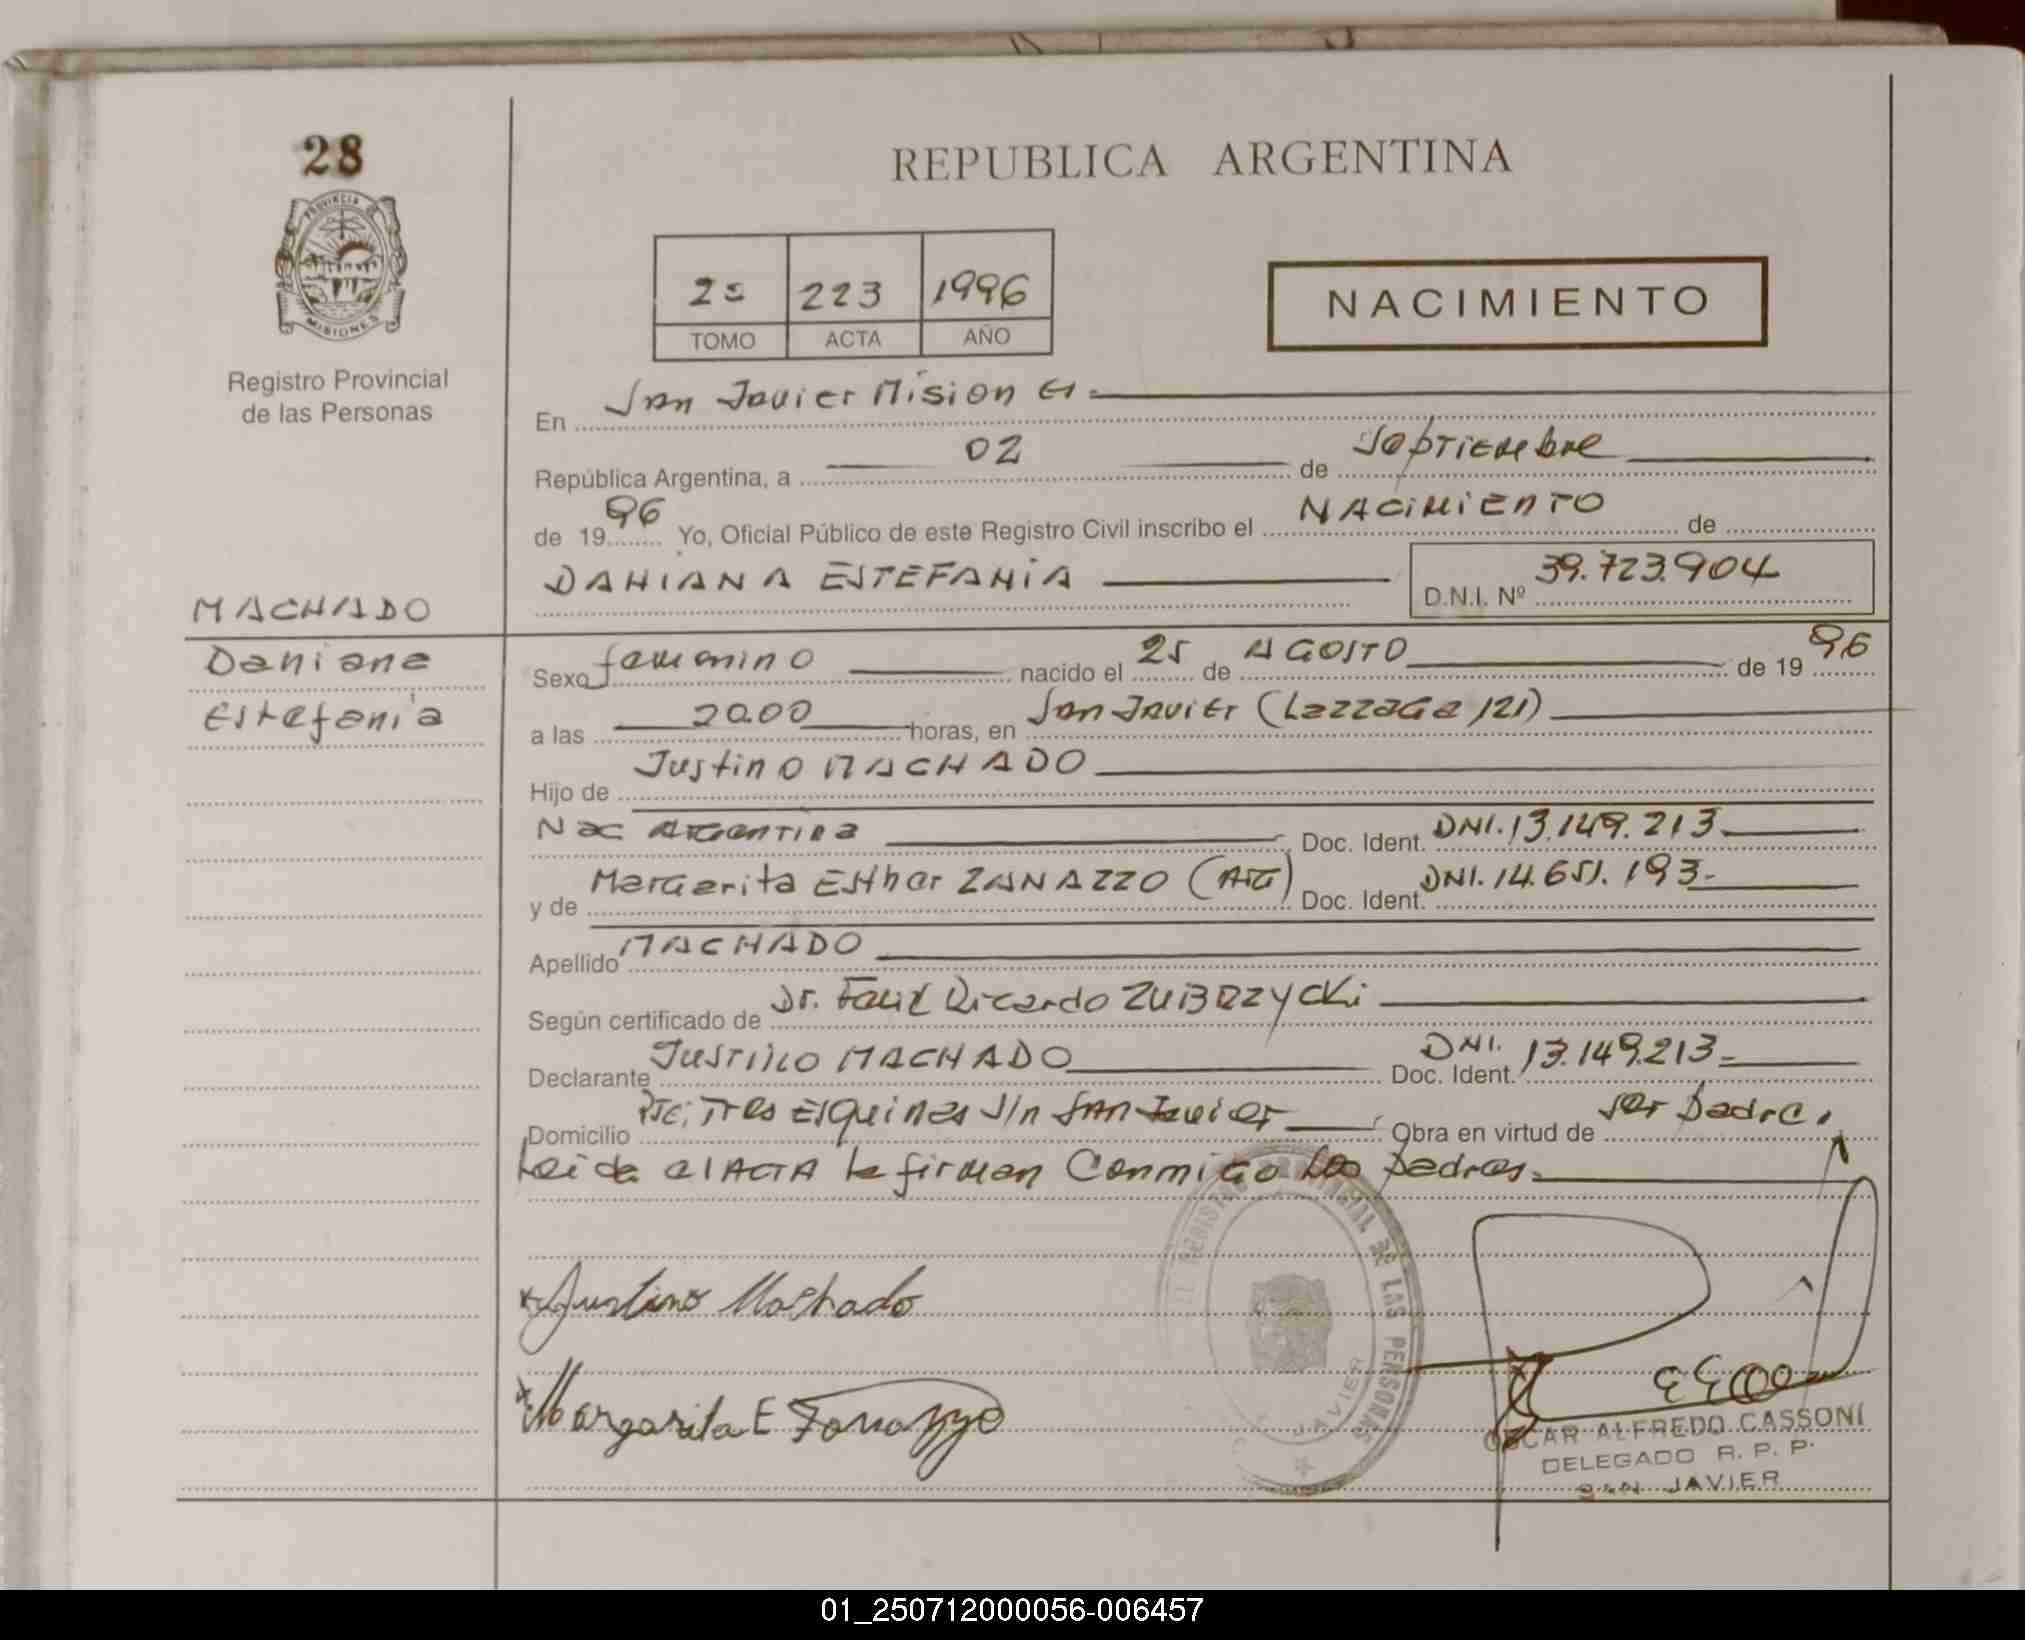 28
PROVINCIA DE
MISIONES
Registro Provincial
de las Personas
MACHADO
Dahiana
Estefanía
REPUBLICA ARGENTINA
2º 223 1996
TOMO ACTA AÑO
NACIMIENTO
En San Javier Misiones
República Argentina, a 02 de Septiembre
de 1996 Yo, Oficial Público de este Registro Civil inscribo el NACIMIENTO de
DAHIANA ESTEFANÍA D.N.I. Nº 39.723.904
Sexo femenino nacido el 25 de AGOSTO de 1996
a las 20.00 horas, en San Javier (Lezzaga 121)
Hijo de Justino MACHADO
Nac Argentina Doc. Ident. DNI. 13.149.213
y de Margarita Esther ZANAZZO (ARG) Doc. Ident. DNI. 14.651.193-
Apellido MACHADO
Según certificado de Dr. Felix Ricardo ZUBRZYCKI
Declarante Justino MACHADO Doc. Ident. DNI. 13.149.213-
Domicilio Tres Esquinas s/n San Javier Obra en virtud de ser padre.
Leida el ACTA la firman Conmigo los padres.
Justino Machado
Margarita E Zanazzo
REGISTRO PROVINCIAL DE LAS PERSONAS
JAVIER
OSCAR ALFREDO CASSONI
DELEGADO R. P. P.
SAN JAVIER
01_250712000056-006457